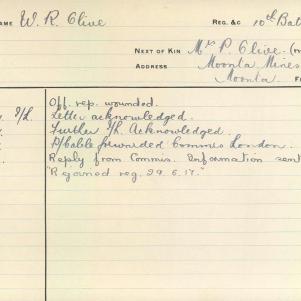 NAME W. R. Clive REG. &C 10th Bat
NEXT OF KIN Mrs P. Clive. (m
ADDRESS Moonta Mines
Moonta
Off. rep. wounded.
Letter acknowledged.
Further I/L. Acknowledged.
P/Cable forwarded Commis London.
Reply from Commis. Information sent
"Rejoined reg. 29.6.17."